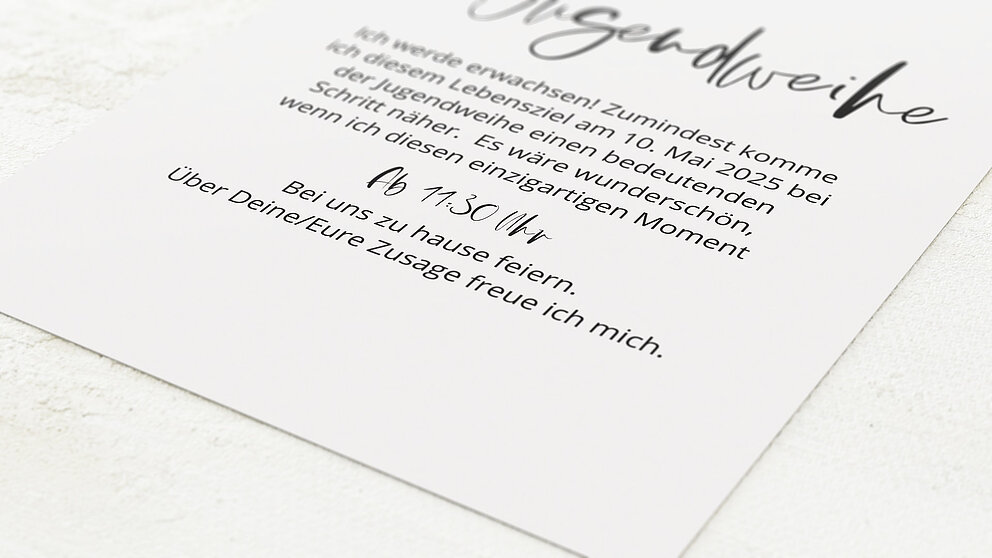 Jugendweihe
Ich werde erwachsen! Zumindest komme
ich diesem Lebensziel am 10. Mai 2025 bei
der Jugendweihe einen bedeutenden
Schritt näher. Es wäre wunderschön,
wenn ich diesen einzigartigen Moment
Ab 11:30 Uhr
Bei uns zu hause feiern.
Über Deine/Eure Zusage freue ich mich.